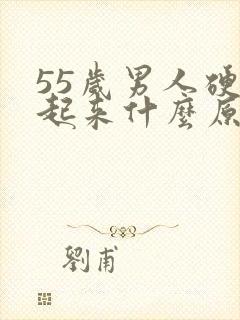 55歲男人硬
起来什麼原
劉甫